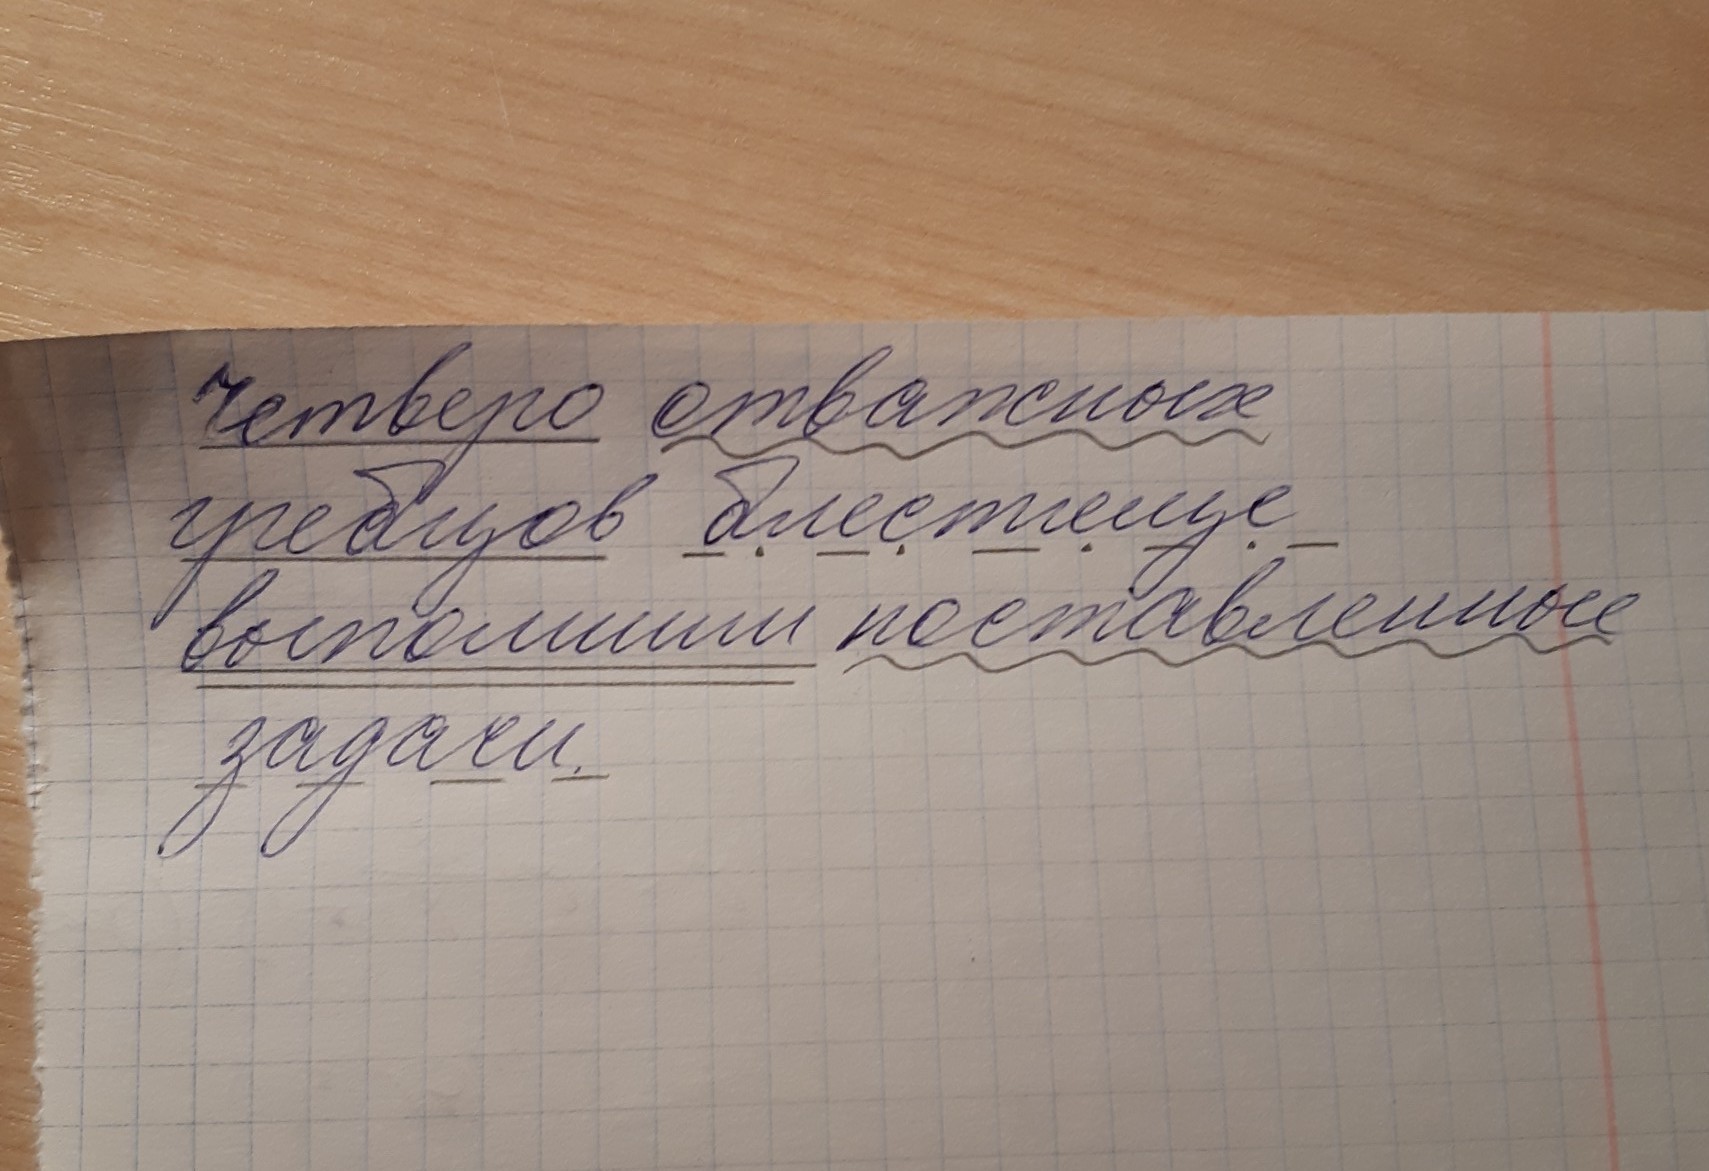 Четверо отважных
гребцов блестяще
выполнили поставленные
задачи.